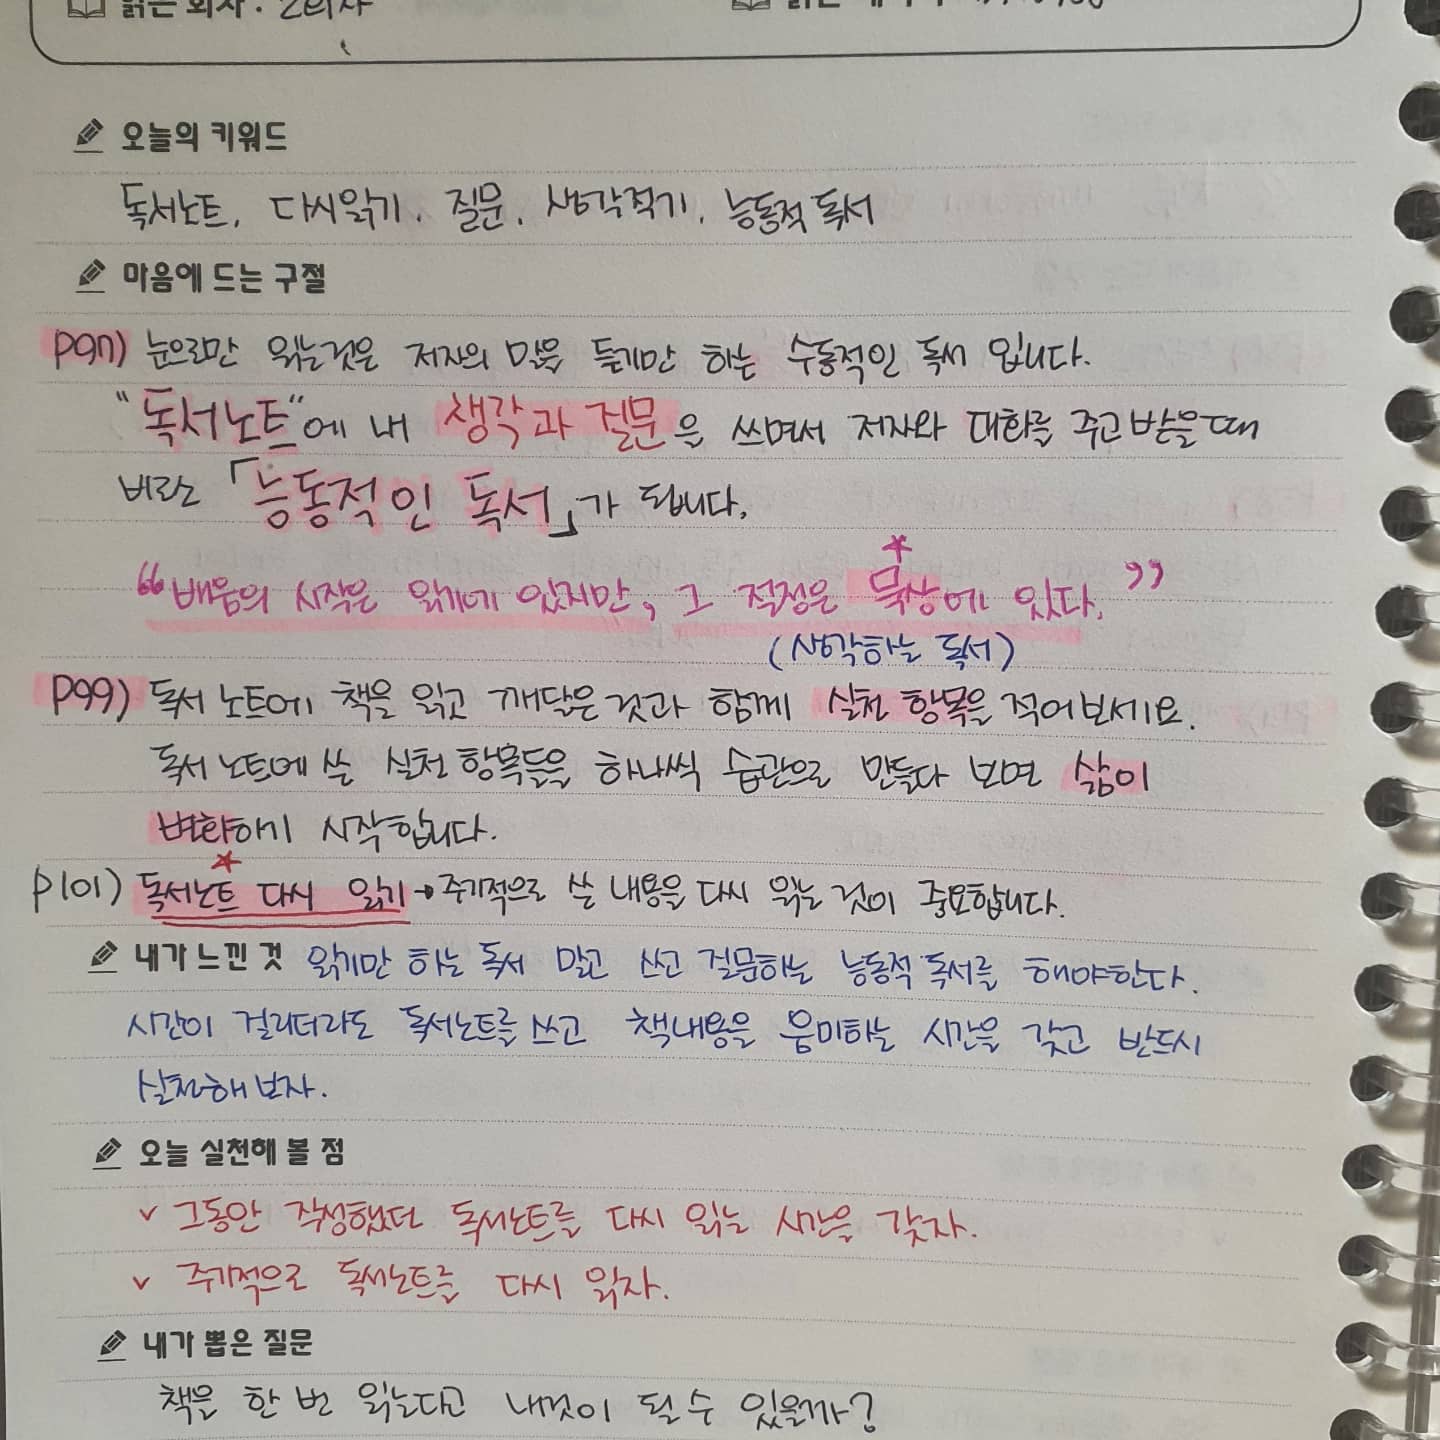 읽은 회차 : 2회차
오늘의 키워드
독서노트, 다시읽기, 질문, 생각적기, 능동적 독서
마음에 드는 구절
P97) 눈으로만 읽는것은 저자의 말을 듣기만 하는 수동적인 독서 입니다.
"독서노트"에 내 생각과 질문을 쓰며서 저자와 대화를 주고받을때
비로소 「능동적인 독서」가 됩니다.
"배움의 시작은 읽기에 있지만, 그 적정은 묵상에 있다."
(생각하는 독서)
P99) 독서노트에 책을 읽고 깨달은 것과 함께 실천 항목을 적어보세요.
독서노트에 쓴 실천 항목들을 하나씩 습관으로 만들다 보면 삶이
변화하기 시작합니다.
P101) 독서노트 다시 읽기→주기적으로 쓴 내용을 다시 읽는 것이 중요합니다.
내가 느낀 것 읽기만 하는 독서 말고 쓰고 질문하는 능동적 독서를 해야한다.
시간이 걸리더라도 독서노트를 쓰고 책내용을 음미하는 시간을 갖고 반드시
실천해보자.
오늘 실천해 볼 점
v 그동안 작성했던 독서노트를 다시 읽는 시간을 갖자.
v 주기적으로 독서노트를 다시 읽자.
내가 뽑은 질문
책을 한 번 읽는다고 내것이 될 수 있을까?